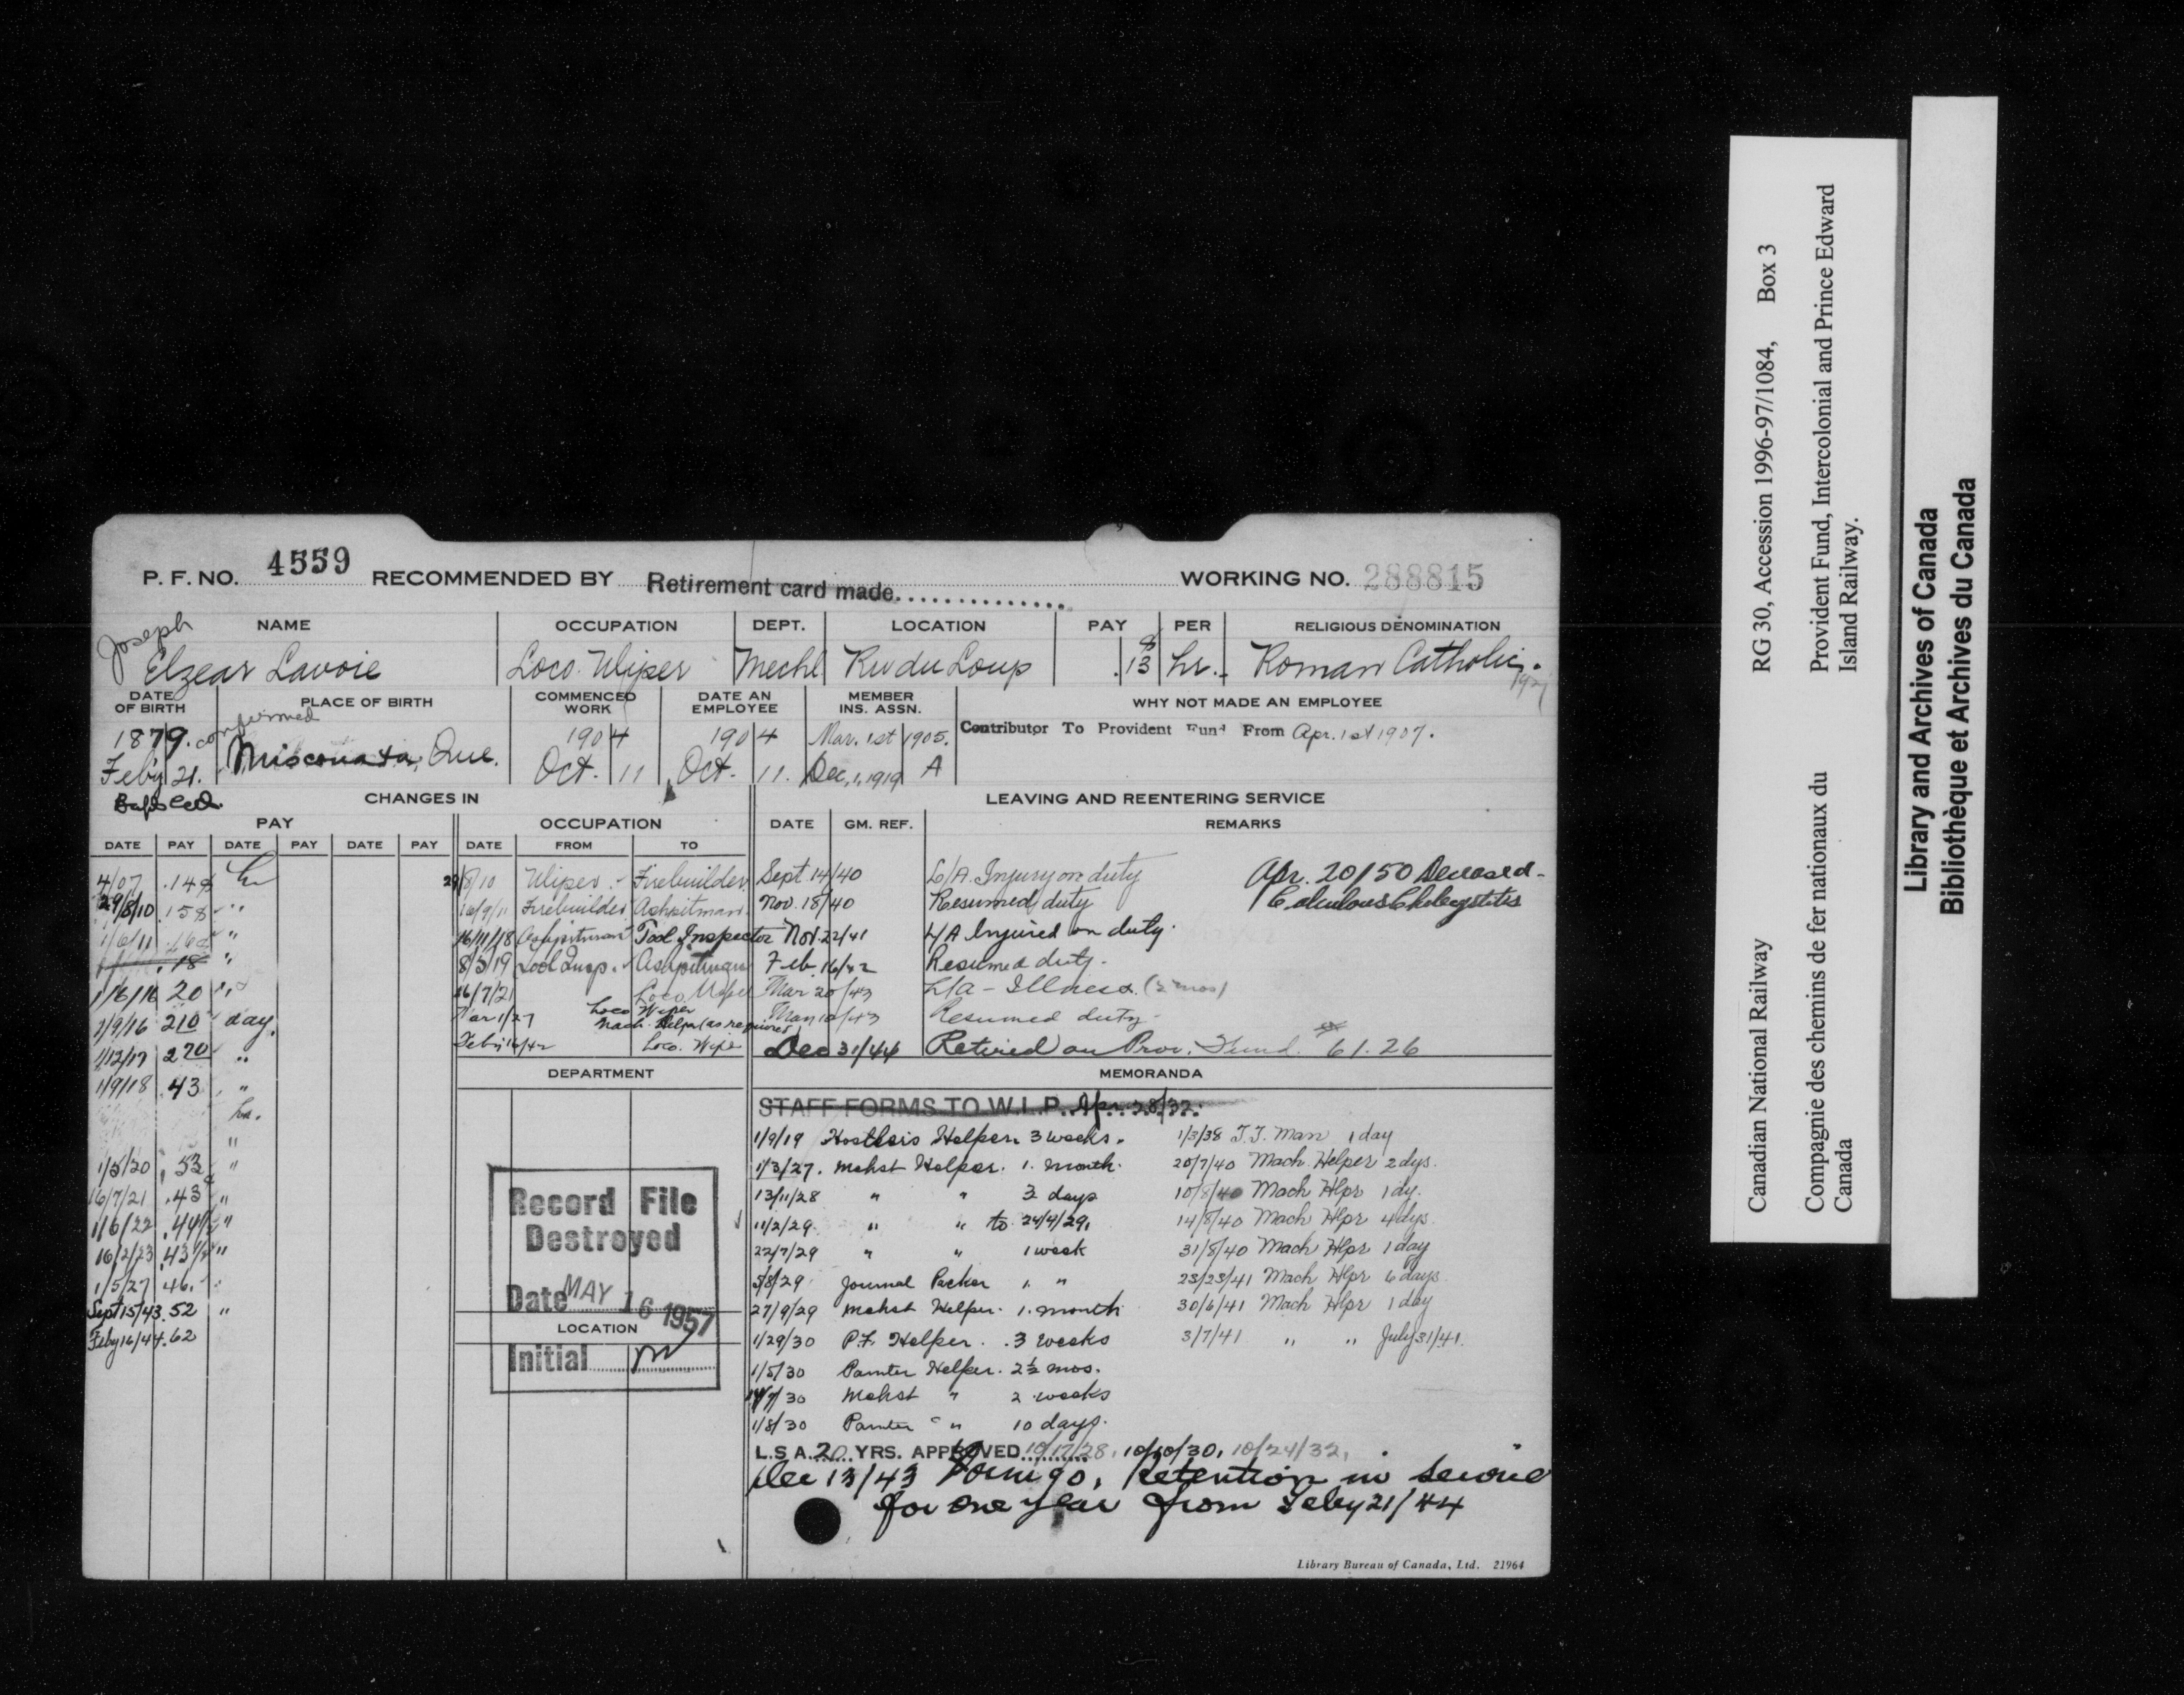 P. F. NO. 4559 RECOMMENDED BY Retirement card made WORKING NO. 288815
NAME OCCUPATION DEPT. LOCATION PAY PER RELIGIOUS DENOMINATION
Joseph
Elzear Lavoie Loco. Wiper Mechl Riv du Loup .13 hr. Roman Catholic.
DATE OF BIRTH PLACE OF BIRTH COMMENCED WORK DATE AN EMPLOYEE MEMBER INS. ASSN. WHY NOT MADE AN EMPLOYEE
confirmed
1879. 1904 1904 Mar. 1st 1905. Contributor To Provident Fund From Apr. 1st 1907.
Feby 21. Que. Oct. 11 Oct. 11. Dec. 1, 1919 A
CHANGES IN LEAVING AND REENTERING SERVICE
PAY OCCUPATION DATE GM. REF. REMARKS
DATE PAY DATE PAY DATE PAY DATE FROM TO
4/07 .14 29/8/10 Wiper Firebuilder Sept 14/40 L/A. Injury on duty Apr. 20/50 Deceased -
29/8/10 .15 " 16/9/11 Firebuilder Ashpitman Nov. 18/40 Resumed duty Calculous Cholecystitis
1/6/11 " 16/11/18 Ashpitman Tool Inspector Nov. 22/41 L/A Injured on duty.
.18 " 8/3/19 Tool Insp. Ashpitman Feb. 16/42 Resumed duty.
1/6/16 20 " 16/7/21 Loco Wiper Mar 20/43 L/A - Illness (2 mos)
1/9/16 210 day. Mar 1/27 Loco Wiper Mach. Helper (as required) Resumed duty -
1/12/17 270 " Feby 16/42 Loco. Wiper Dec 31/44 Retired on Prov. Fund. 61.26
1/9/18 .43 "
hr.
"
1/5/20 .53 "
16/7/21 .43 "
1/6/22 .44½ "
16/2/23 .43½ "
1/5/27 46.
Sept 15/43 .52 "
Feby 16/44 .62
DEPARTMENT
Record File
Destroyed
Date MAY 16 1957
LOCATION
Initial
MEMORANDA
STAFF FORMS TO W.L.P. Apr. 28/32.
1/9/19 Hostlers Helper. 3 weeks. 1/3/38 T.T. Man 1 day
1/3/27. Mchst Helper. 1. month. 20/7/40 Mach. Helper 2 dys.
13/11/28 " " days 10/8/40 Mach Hlpr 1 dy.
11/2/29. " " to 24/4/29. 14/8/40 Mach Hlpr 4 dys.
22/7/29 " " 1 week 31/8/40 Mach Hlpr 1 day
5/8/29 Journal Packer 1. " 23/23/41 Mach Hlpr 6 days
27/9/29 Mchst Helper. 1. month 30/6/41 Mach Hlpr 1 day
1/29/30 P.F. Helper. .3 weeks 3/7/41 " " July 31/41.
1/5/30 Painter Helper. 2½ mos.
Mchst " 2 weeks
1/8/30 Painter " 10 days.
L.S A. 20 YRS. APPROVED 10/17/28, 10/10/30, 10/24/32,
Dec 13/43 Form 90, Retention in service
for one year from Feby 21/44
Library Bureau of Canada, Ltd. 21964
Canadian National Railway RG 30, Accession 1996-97/1084, Box 3
Compagnie des chemins de fer nationaux du Provident Fund, Intercolonial and Prince Edward
Canada Island Railway.
Library and Archives of Canada
Bibliothèque et Archives du Canada